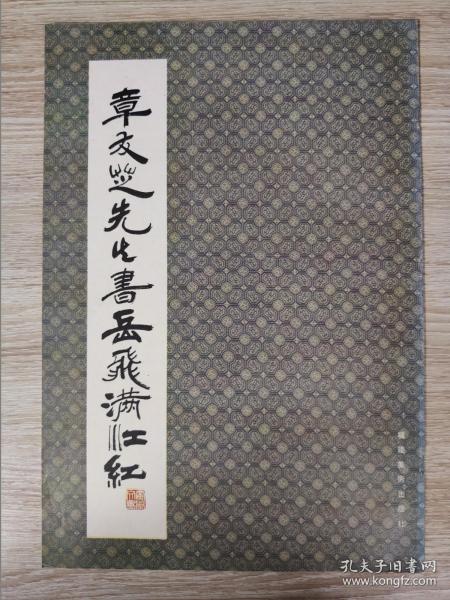 章友芝先生書岳飛滿江紅
孔夫子旧書网
www.kongfz.com